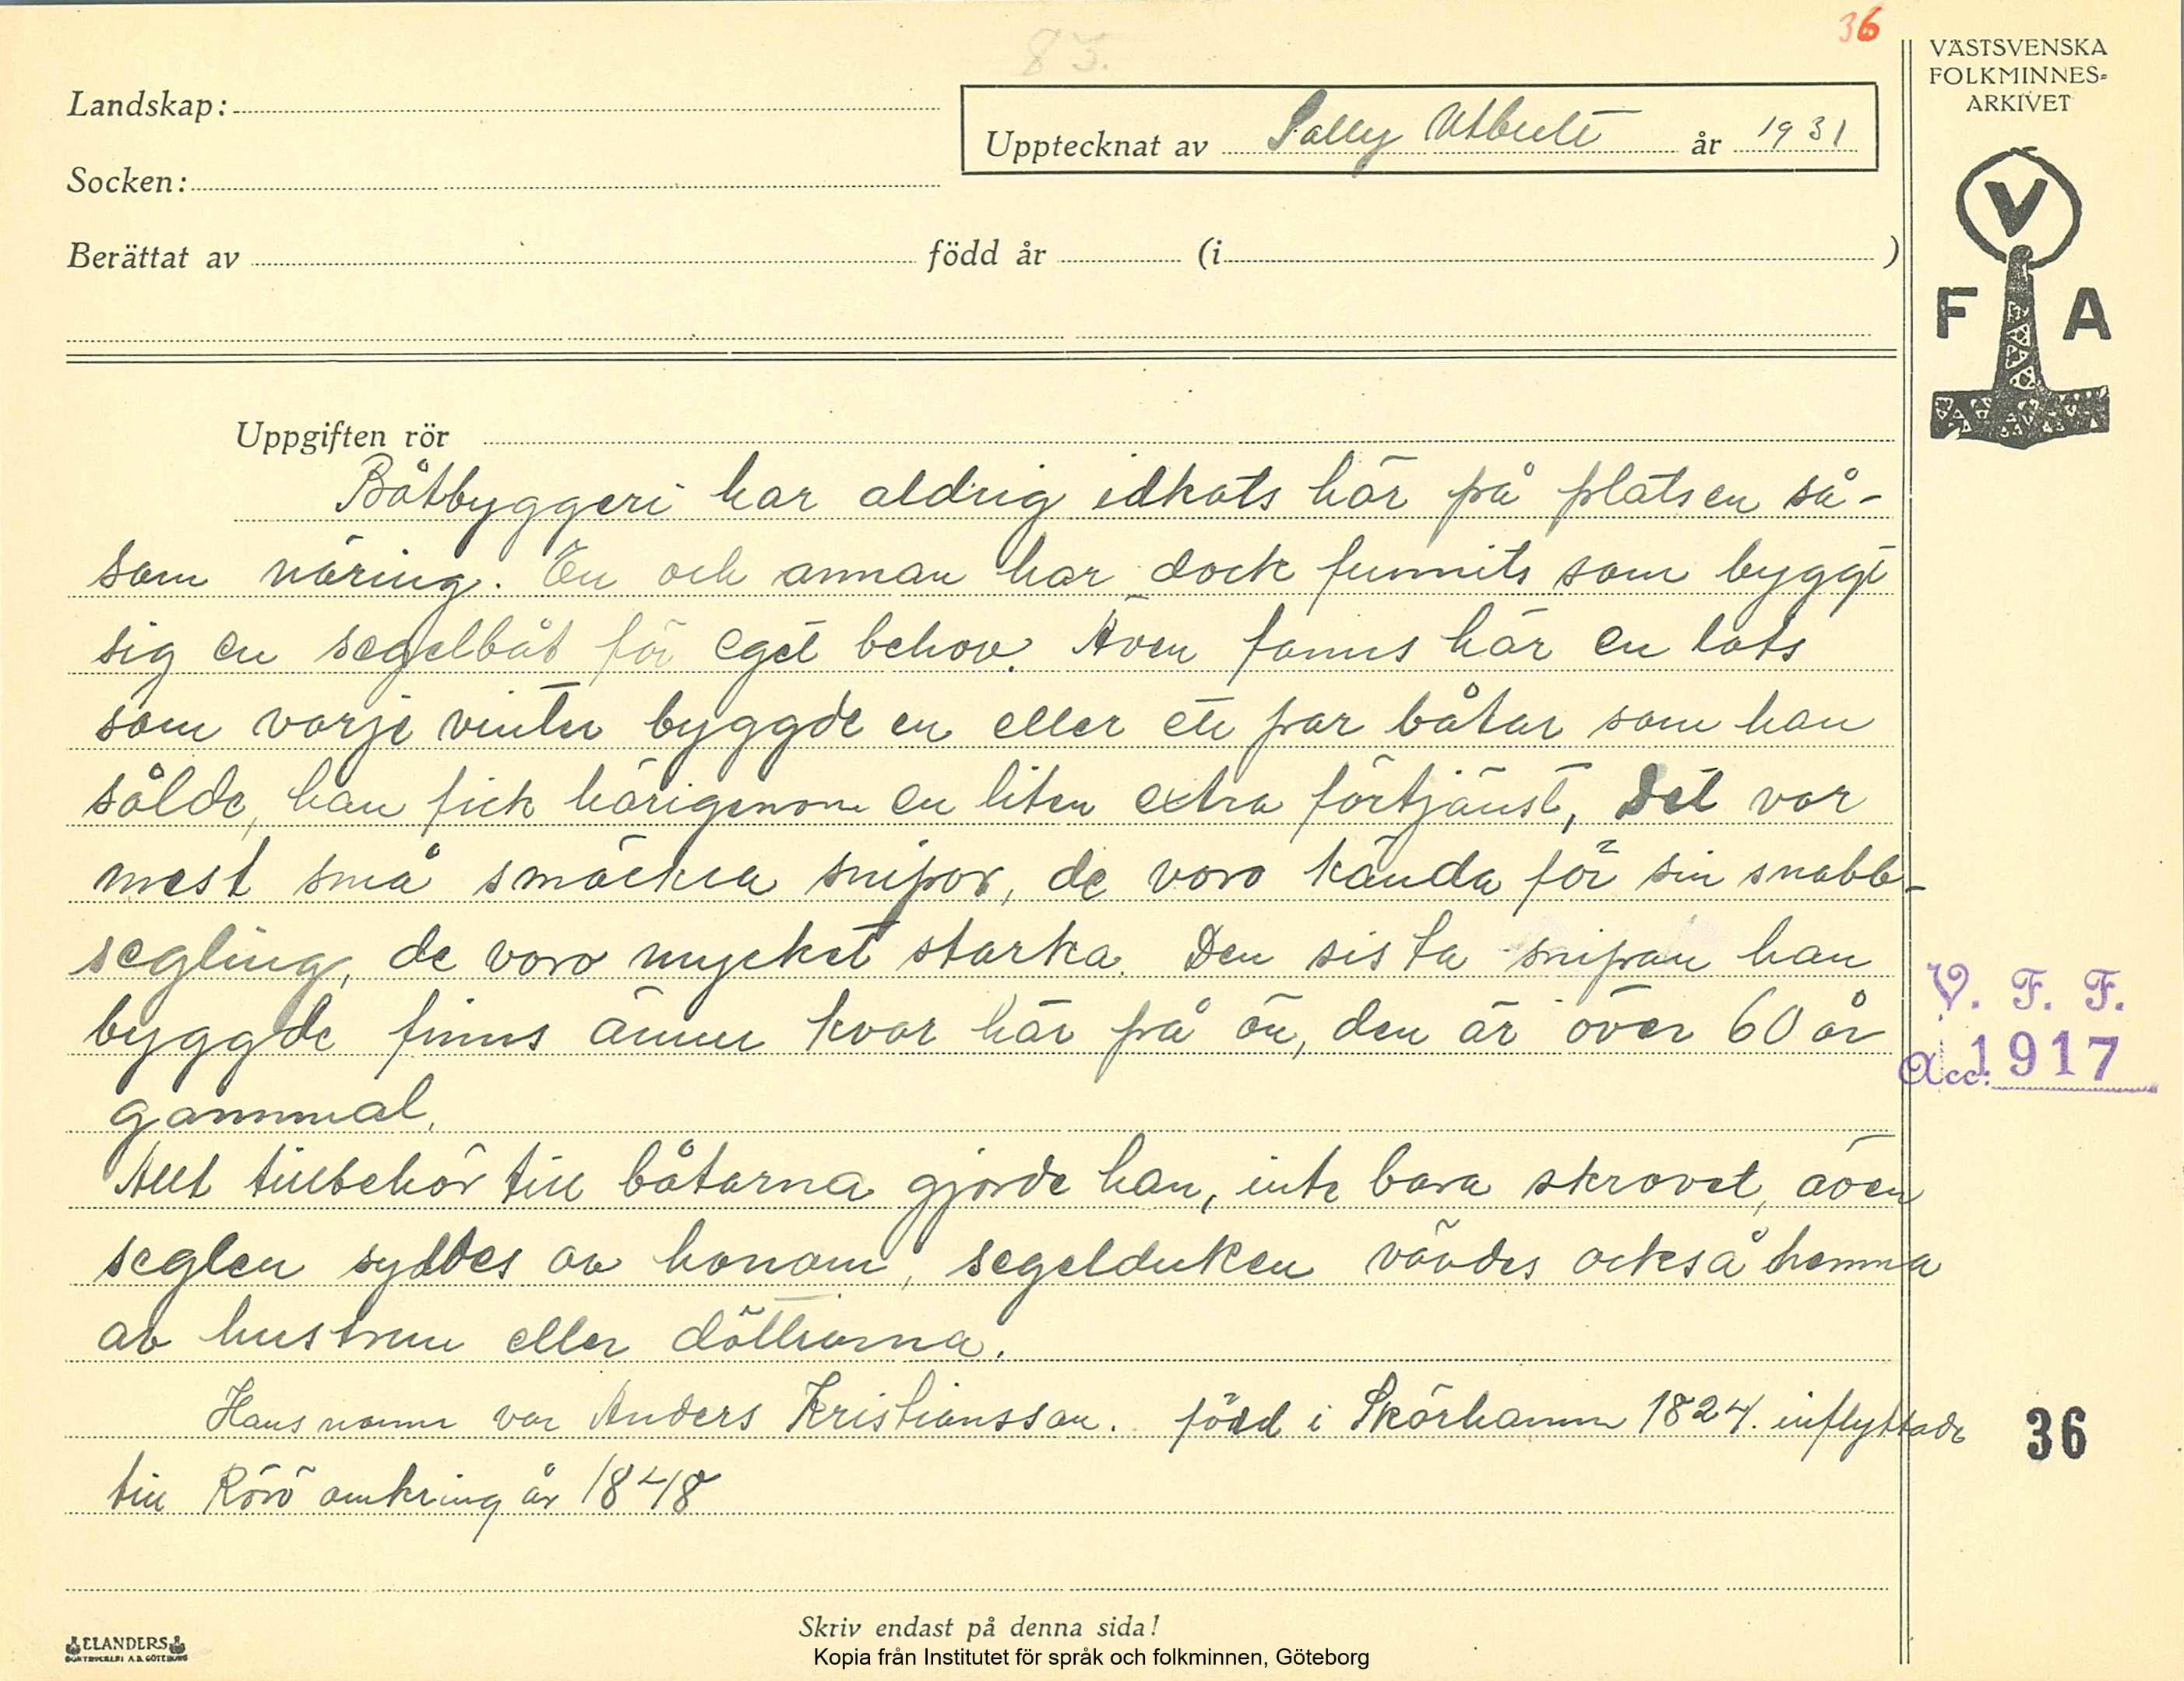 36
85.
VÄSTSVENSKA
FOLKMINNES=
ARKIVET
Landskap:
Upptecknat av Sally Utbult år 1931
Socken:
Berättat av född år (i )
V
F A
Uppgiften rör
Båtbyggeri har aldrig idkats här på platsen så-
som näring. En och annan har dock funnits som byggt
sig en segelbåt för eget behov. Även fanns här en lots
som varje vinter byggde en eller ett par båtar som han
sålde, han fick härigenom en liten extra förtjänst, Det var
mest små smäckra snipor, de voro kända för sin snabb-
segling, de voro mycket starka. Den sista snipan han
byggde finns ännu kvar här på ön, den är över 60 år
gammal.
Allt tillbehör till båtarna gjorde han, inte bara skrovet, även
seglen syddes av honom, segelduken vävdes också hemma
av hustrun eller döttrarna.
Hans namn var Anders Kristiansson. född i Skärhamn 1824. inflyttade
till Rörö omkring år 1848
V. F. F.
Acc. 1917
36
Skriv endast på denna sida!
ELANDERS
BOKTRYCKERI A.B. GÖTEBORG
Kopia från Institutet för språk och folkminnen, Göteborg